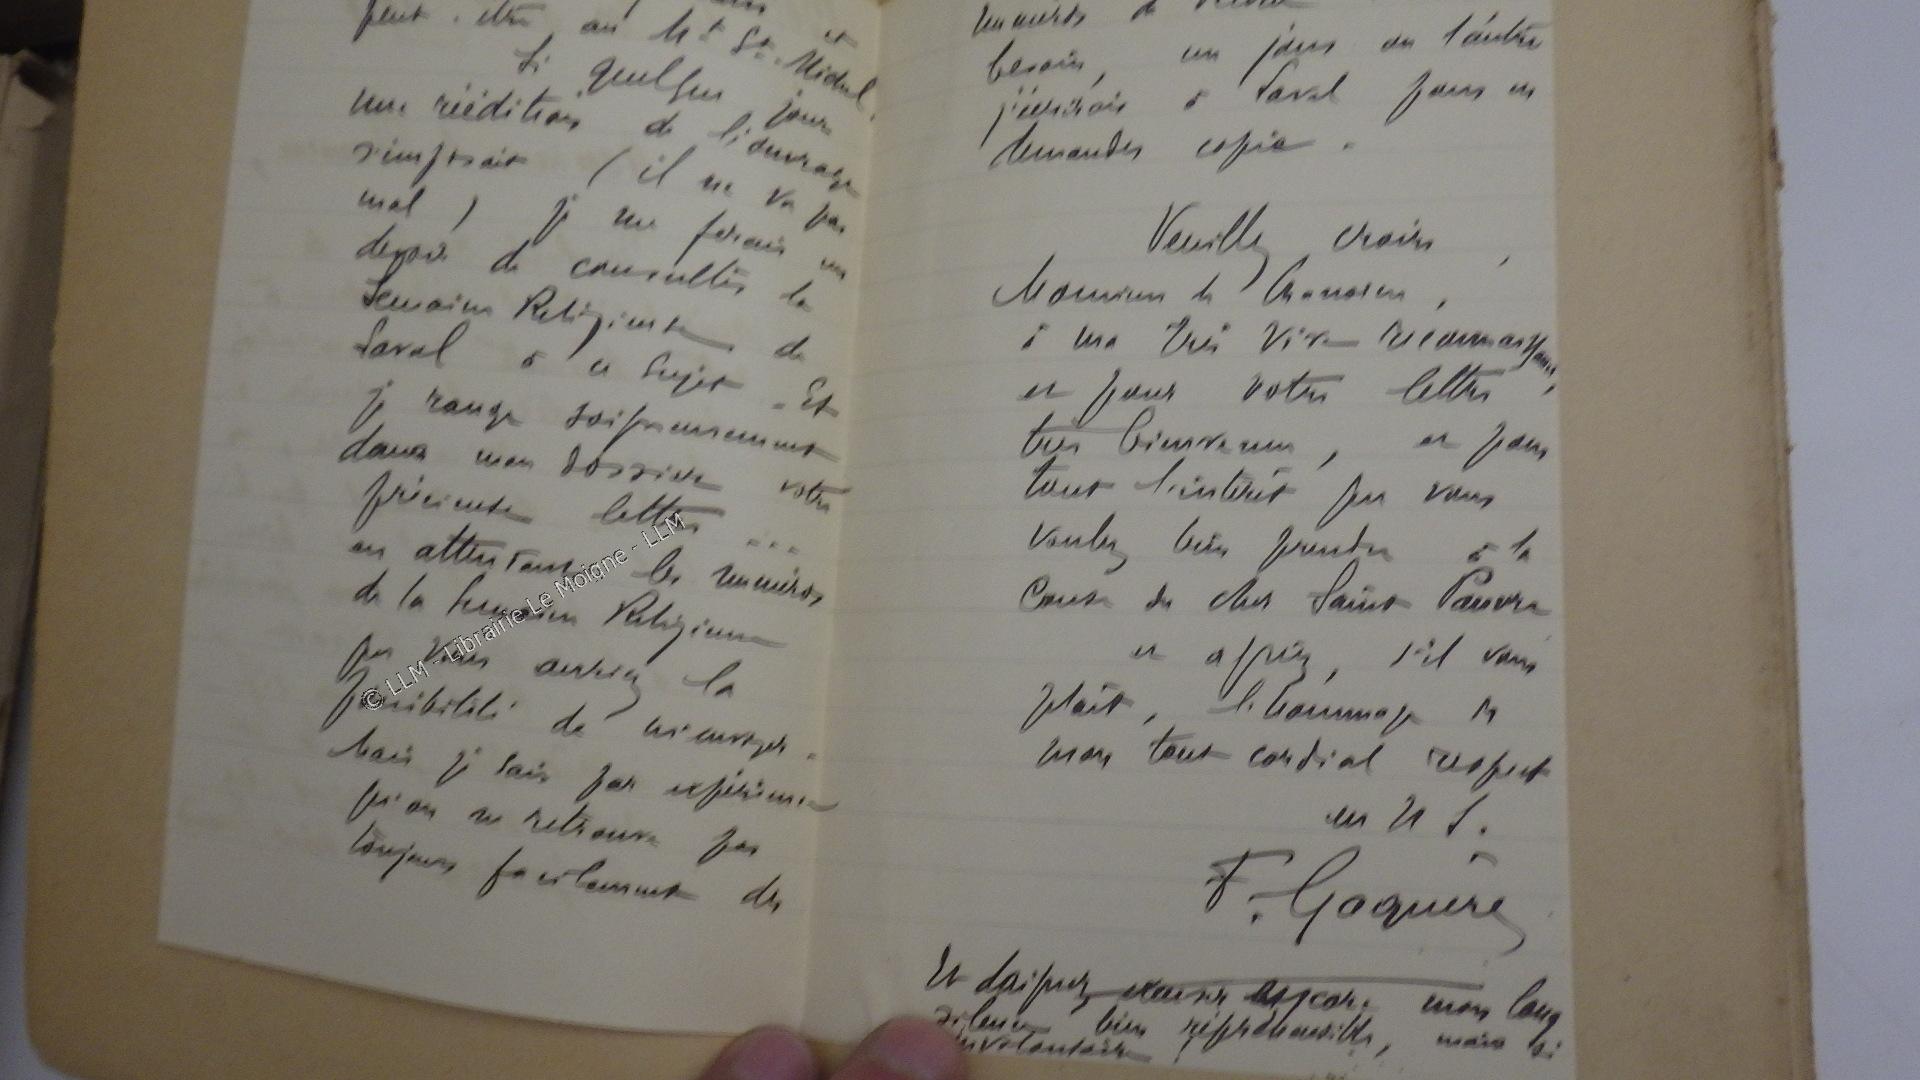 peut-être au Mt St-Michel.
Si quelque jour
une réédition de l'ouvrage
s'imposait (il ne va pas
mal) je me ferais un
devoir de consulter la
Semaine Religieuse de
Laval à ce sujet. Et
je range soigneusement
dans mon dossier votre
précieuse lettre ...
en attendant les numéros
de la Semaine Religieuse
que vous auriez la
possibilité de m'envoyer.
Mais je sais par expérience
qu'on ne retrouve pas
toujours facilement des
numéros de
besoin, un jour ou l'autre
j'écrirais à Laval pour en
demander copie.
Veuillez croire,
Monsieur le Chanoine,
à ma très vive reconnaissance,
et pour votre lettre
très bienvenue, et pour
tout l'intérêt que vous
voulez bien prendre à la
Cause du cher Saint Pauvre
et agréez, s'il vous
plaît, l'hommage de
mon tout cordial respect
en N S.
F. Gaquère
Et daignez excuser encore mon long
silence bien répréhensible, mais si
involontaire !
© LLM - Librairie Le Moigne - LLM